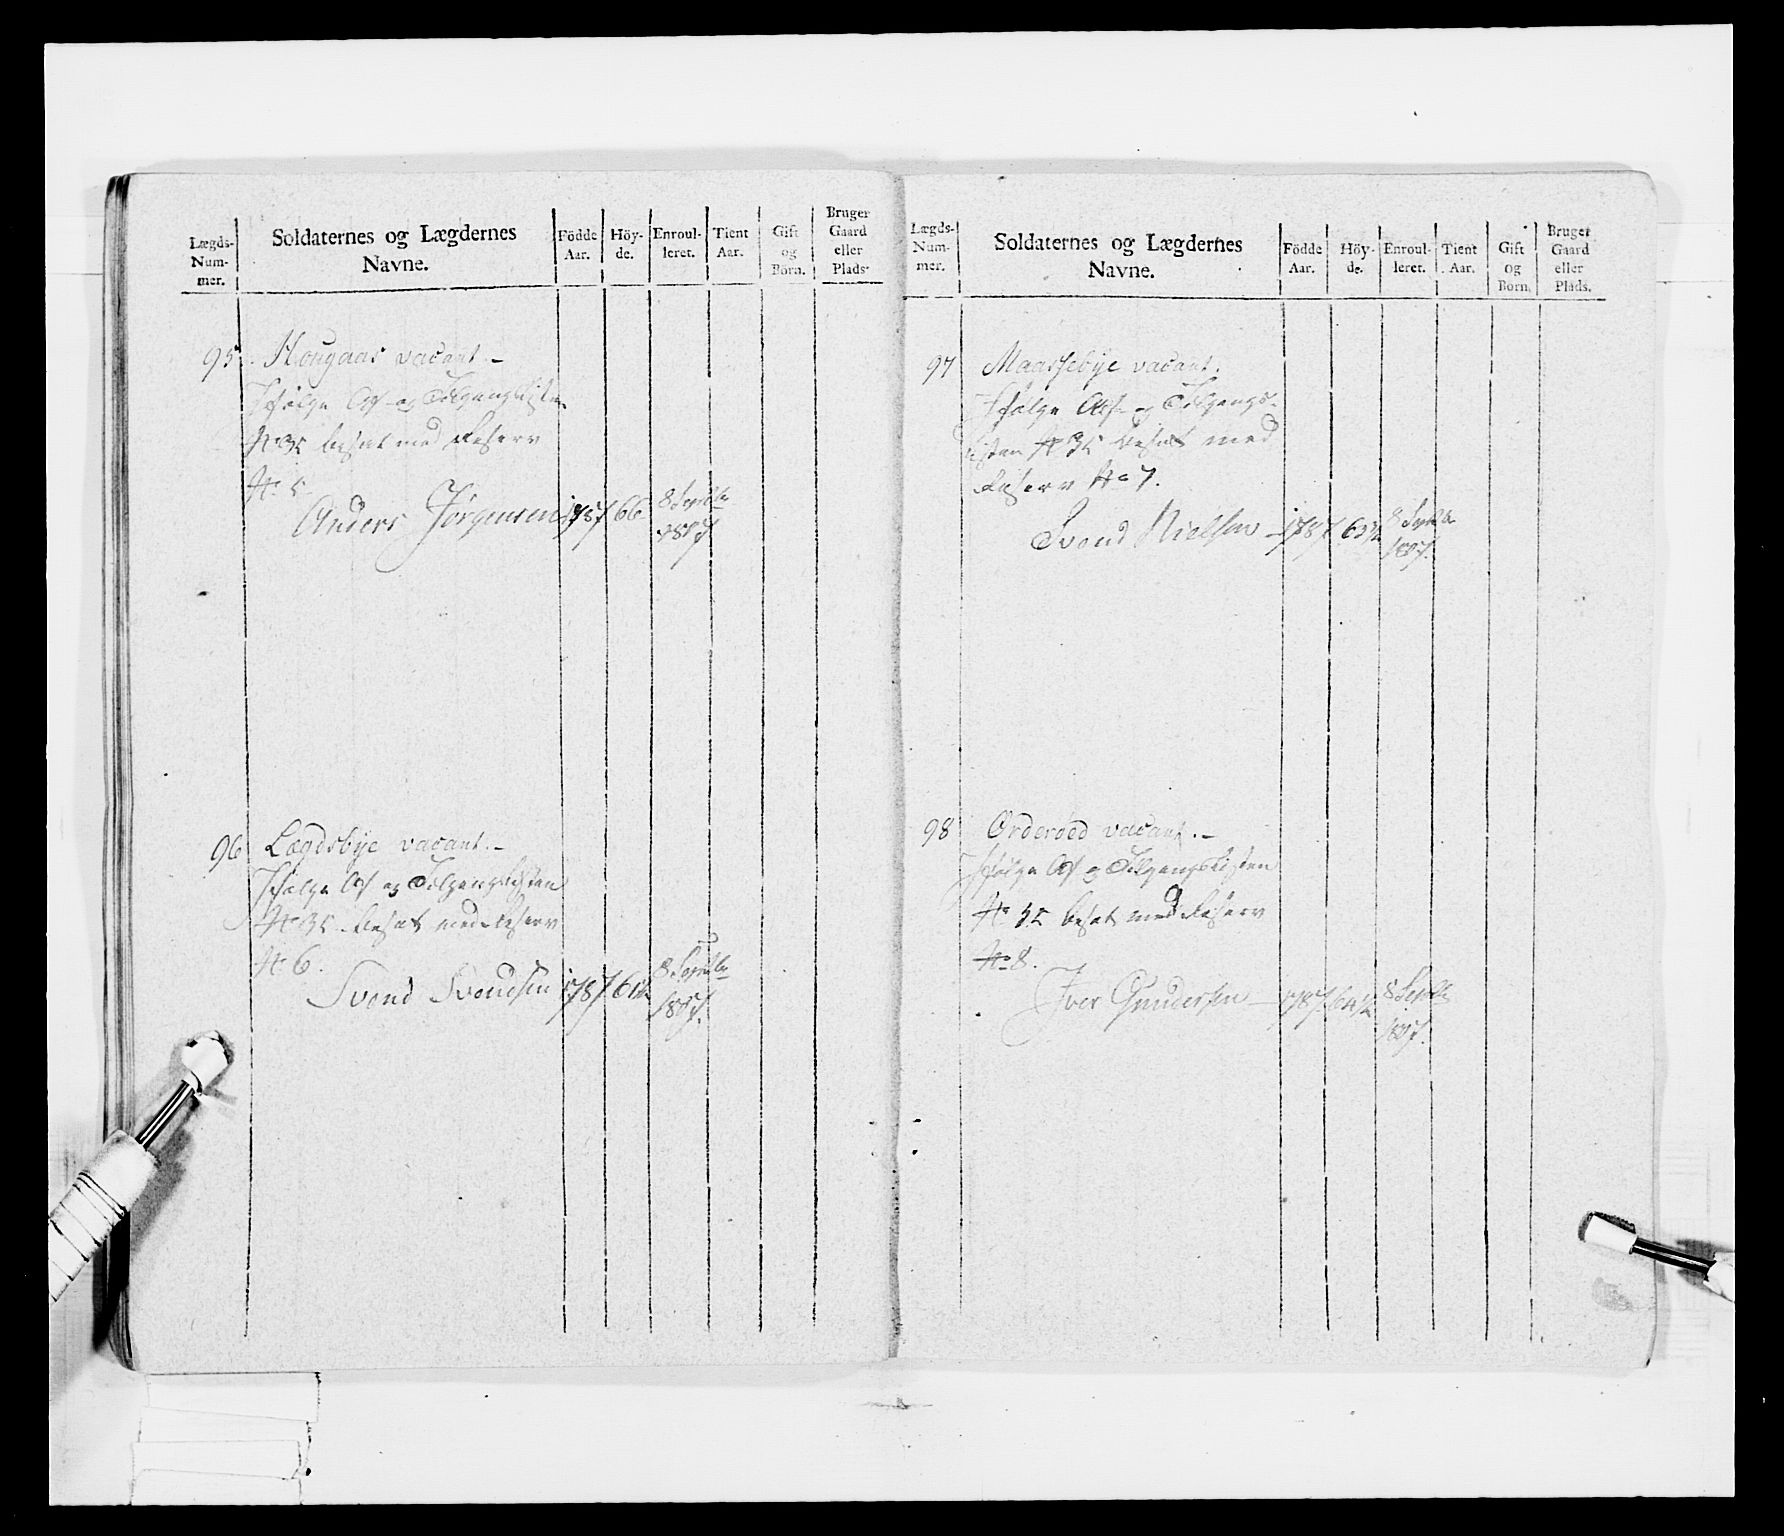 Lægds-
Num-
mer.
Soldaternes og Lægdernes
Navne.
Födde
Aar.
Höy-
de.
Enroul-
leret.
Tient
Aar.
Gift
og
Börn.
Bruger
Gaard
eller
Plads.
95. Hougaas vacant.-
Ifølge Af- og Tilgangslisten
No 35 besat med Reserv
No 5
Anders Jørgensen 1787 66 8 Septbr
1807
96 Lægdsbye vacant.-
Ifølge Af og Tilgangslisten
No 35 besat med Reserv
No 6.
Svend Svendsen 1787 8 Septbr
1807.
Lægds-
Num-
mer.
Soldaternes og Lægdernes
Navne.
Födde
Aar.
Höy-
de.
Enroul-
leret.
Tient
Aar.
Gift
og
Born.
Bruger
Gaard
eller
Plads.
97 Maassebye vacant.
Ifølge Af- og Tilgangs-
listen No 35 besat med
Reserv No 7.
Svend Nielsen 1787 8 Septbr
1807.
98 Orderoed vacant.-
Ifølge Af og Tilgangslisten
No 35 besat med Reserv
No 8.
Iver Gundersen 1787 64 1/2 8 Septbr
1807.